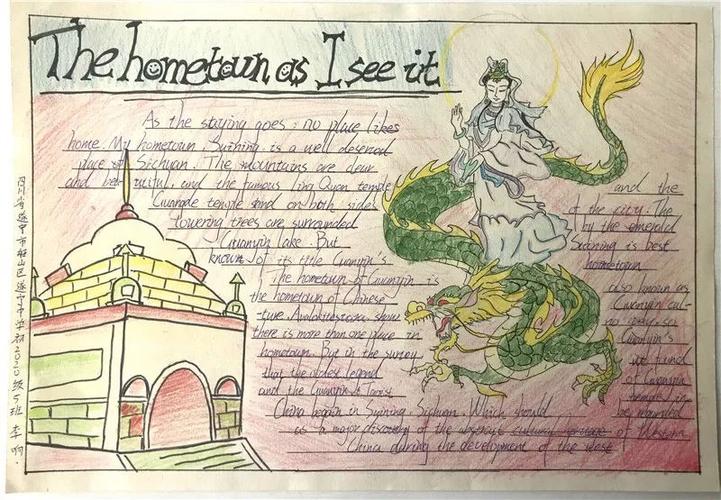 The hometown as I see it
As the staying goes: no place likes
home. My hometown, Suining is a well deserved
place of Sichuan. The mountains are clear
and beautiful, and the famous Ling Quan temple and the
Guangde temple sand on both sides of the city. The
towering trees are surrounded by the emerald
Guanyin lake. But Suining is best
known of its title Guanyin's hometown
The hometown of Guanyin is also known as
the hometown of Chinese Guanyin cul-
ture. Avalokitesvara show
there is more than one place in Guanyin's
hometown. But in the survey found
that the oldest legend of Guanyin
and the Guanyin temple in
China began in Suining Sichuan. Which should be
as a major discovery of the abstract cultural heritage of Western
China during the development of the west
四川省遂宁市船山区遂宁中学初2020级5班 李